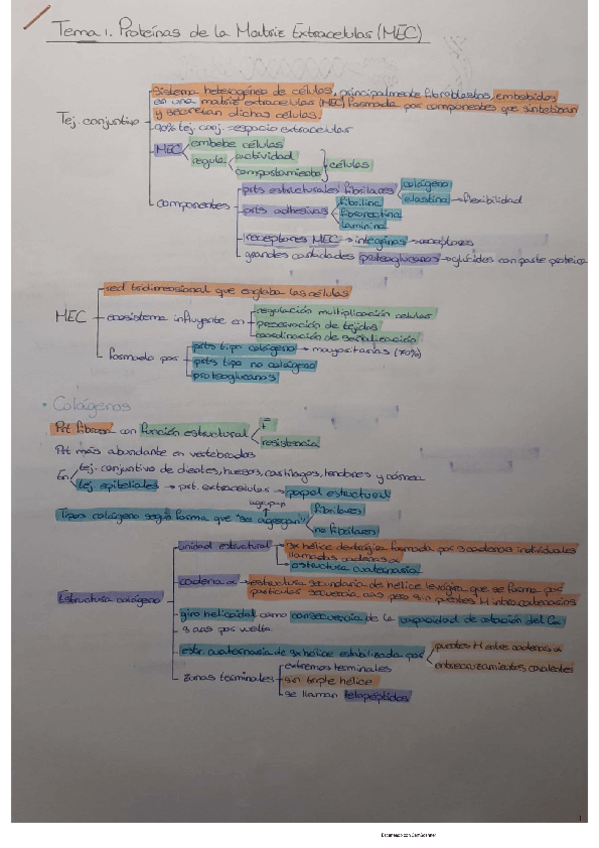 Tema 1. Proteínas de la Matriz Extracelular (MEC)
Sistema heterogéneo de células, principalmente fibroblastos, embebidas
en una matriz extracelular (MEC) formada por componentes que sintetizan
y secretan dichas células.
Tej. conjuntivo
90% tej. conj. = espacio extracelular
MEC
embebe células
regula
actividad
comportamiento
células
componentes
prts estructurales fibrilares
colágeno
elastina → flexibilidad
prts adhesivas
fibrilina
fibronectina
laminina
receptores MEC → integrinas → receptores
grandes cantidades proteoglucanos → glúcidos con parte proteica
MEC
red tridimensional que engloba las células
ecosistema influyente en
regulación multiplicación celular
preservación de tejidos
coordinación de señalización
formada por
prts tipo colágeno → mayoritarias (70%)
prts tipo no colágeno
proteoglucanos
· Colágenos
Prt fibrosa con función estructural
resistencia
Prt más abundante en vertebrados
En
tej. conjuntivo de dientes, huesos, cartílagos, tendones y córnea
tej epiteliales → prt. extracelulares → papel estructural
Tipos colágeno según forma que "se agregan"
fibrilares
no fibrilares
Estructura colágeno
unidad estructural
3x hélice dextrógira formada por 3 cadenas individuales
llamadas cadenas α
estructura cuaternaria
cadena α → estructura secundaria de hélice levógira que se forma por
particular secuencia aas pero sin puentes H intracatenarios
giro helicoidal como consecuencia de la capacidad de rotación del Cα
3 aas por vuelta
estr. cuaternaria de 3x hélice estabilizada por
puentes H entre cadenas α
entrecruzamientos covalentes
zonas terminales
extremos terminales
sin triple hélice
se llaman telopéptidos
1
Escaneado con CamScanner